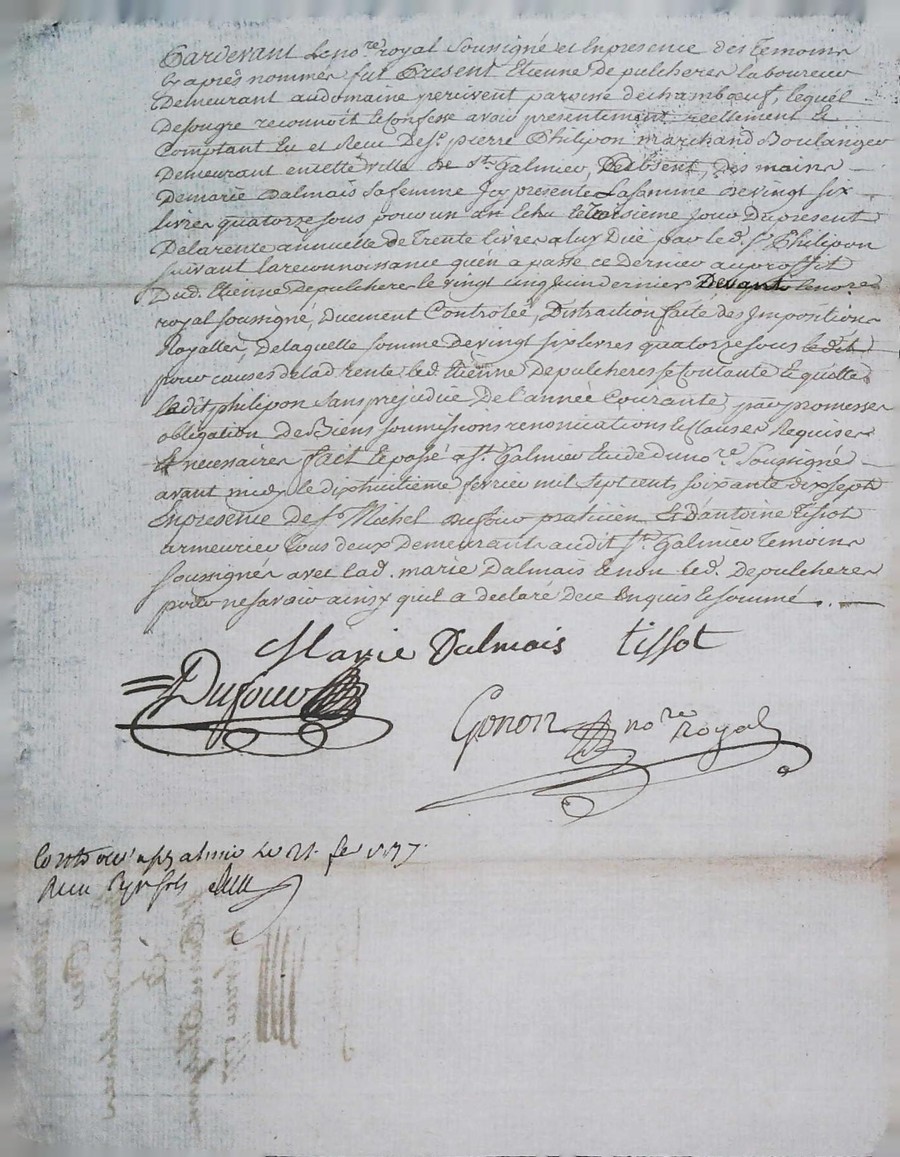 Pardevant Le no.re royal Soussigné et Enpresence des temoins
Cy après nommés fut Present Etienne depulcheres laboureur
Demeurant audomaine percivent paroisse dechambœuf, lequel
Desongre reconnoit & Confesse avoir presentement reellement &
Comptant eu et Receu De Sr. pierre Philipon marchand Boulanger
Demeurant encette ville de St. Galmier, absent, des mains
Demarie Dalmais safemme Icy presente Lasomme devingt six
livres quatorze sous pour un an Echu le troisieme jour Dupresent
Delarente annuelle de trente livres aluy Düe par led. Sr. Philipon
suivant lareconnoissance quen a passé ce Dernier auproffit
Dud. Etienne depulcheres le vingt cinq juin dernier Devant lenore
royal soussigné, Duement Controlée, Distraction faite des Impositions
Royalles, Delaquelle somme devingt six livres quatorze sous
pour causes delad. rente led. Etienne Depulcheres se Contante & quitte
ledit philipon sans prejudice De l'année Courante, par promesses
obligation De Biens soumissions renonciations & Clauses Requises
& necessaires fait & passé a St. Galmier Etude du no.re Soussigné
avant midy le dixhuitieme fevrier mil sept cents soixante dix sept
Enpresence De Sr. Michel dufour praticien & D'antoine tissot
armeurier tous deux Demeurants audit St. Galmier temoins
Soussignés avec lad. marie Dalmais & non led. Depulcheres
pour nesavoir ainsy quil a declaré de ce Enquis & sommé.
Marie Dalmais tissot
Dufour
Gonon no.re royal
a St galmier le 21. fer 1777.
Receu sols